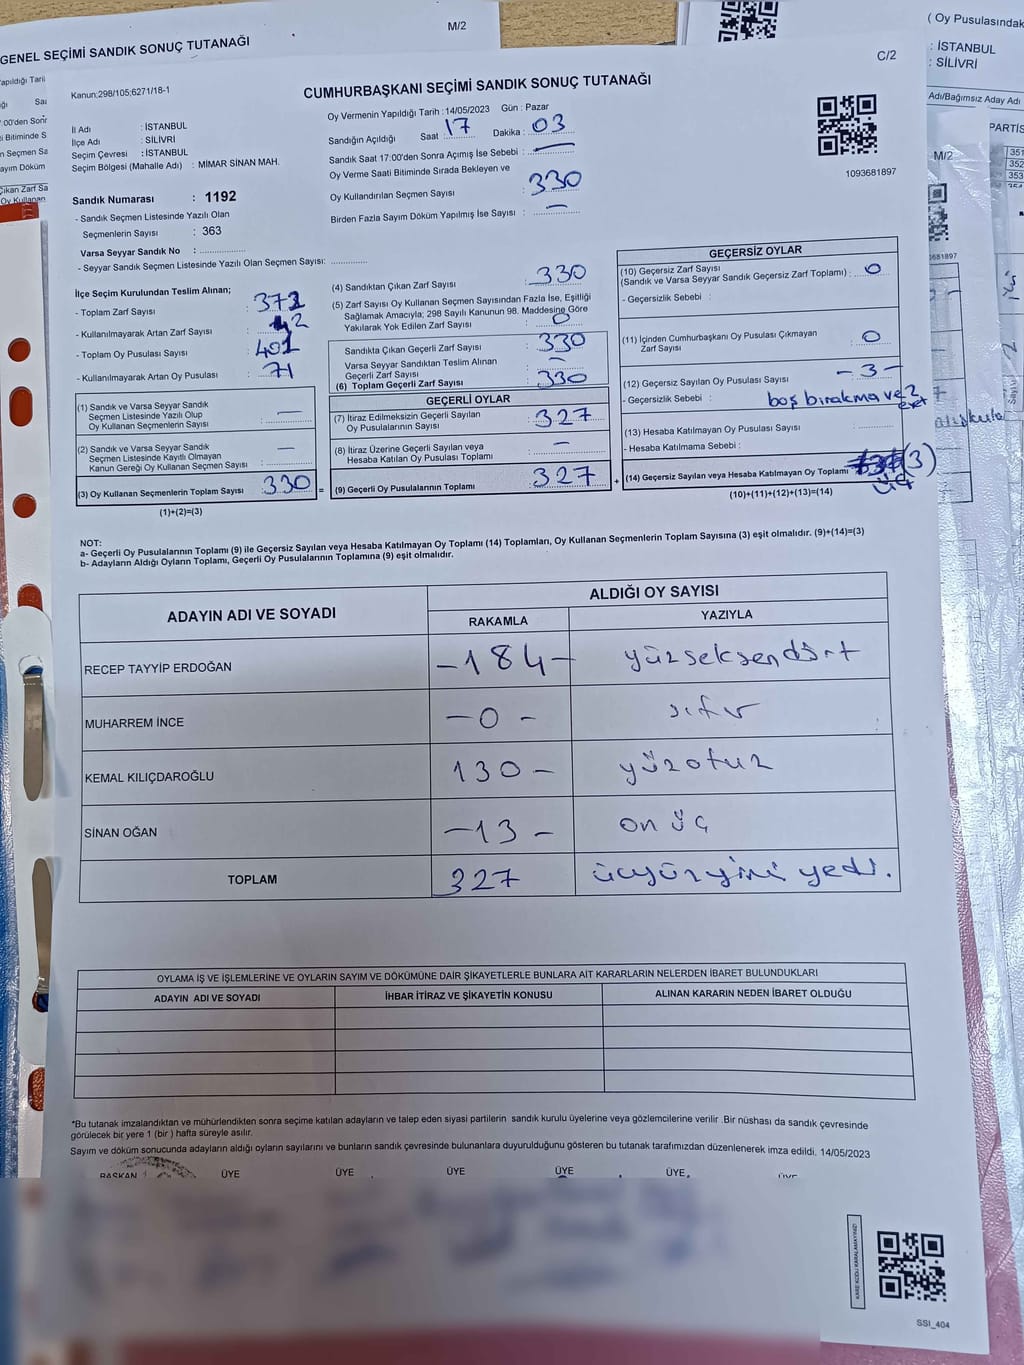 M/2
GENEL SEÇİMİ SANDIK SONUÇ TUTANAĞI
( Oy Pusulasındak
: İSTANBUL
: SİLİVRİ
Adı/Bağımsız Aday Adı
PARTİS
M/2
351
352
353
C/2
Kanun:298/105;6271/18-1
CUMHURBAŞKANI SEÇİMİ SANDIK SONUÇ TUTANAĞI
İl Adı : İSTANBUL
İlçe Adı : SİLİVRİ
Seçim Çevresi : İSTANBUL
Seçim Bölgesi (Mahalle Adı) : MİMAR SİNAN MAH.
Oy Vermenin Yapıldığı Tarih : 14/05/2023 Gün : Pazar
Sandığın Açıldığı Saat : 17 Dakika : 03
Sandık Saat 17:00'den Sonra Açımış İse Sebebi : —
Oy Verme Saati Bitiminde Sırada Bekleyen ve
Oy Kullandırılan Seçmen Sayısı : 330
Birden Fazla Sayım Döküm Yapılmış İse Sayısı : —
1093681897
Sandık Numarası : 1192
- Sandık Seçmen Listesinde Yazılı Olan
Seçmenlerin Sayısı : 363
Varsa Seyyar Sandık No :
- Seyyar Sandık Seçmen Listesinde Yazılı Olan Seçmen Sayısı:
İlçe Seçim Kurulundan Teslim Alınan;
- Toplam Zarf Sayısı : 372
- Kullanılmayarak Artan Zarf Sayısı : 42
- Toplam Oy Pusulası Sayısı : 401
- Kullanılmayarak Artan Oy Pusulası : 71
(1) Sandık ve Varsa Seyyar Sandık
Seçmen Listesinde Yazılı Olup
Oy Kullanan Seçmenlerin Sayısı : —
(2) Sandık ve Varsa Seyyar Sandık
Seçmen Listesinde Kayıtlı Olmayan
Kanun Gereği Oy Kullanan Seçmen Sayısı : —
(3) Oy Kullanan Seçmenlerin Toplam Sayısı : 330 =
(1)+(2)=(3)
(4) Sandıktan Çıkan Zarf Sayısı : 330
(5) Zarf Sayısı Oy Kullanan Seçmen Sayısından Fazla İse, Eşitliği
Sağlamak Amacıyla; 298 Sayılı Kanunun 98. Maddesine Göre
Yakılarak Yok Edilen Zarf Sayısı : 0
Sandıkta Çıkan Geçerli Zarf Sayısı : 330
Varsa Seyyar Sandıktan Teslim Alınan
Geçerli Zarf Sayısı : —
(6) Toplam Geçerli Zarf Sayısı : 330
GEÇERLİ OYLAR
(7) İtiraz Edilmeksizin Geçerli Sayılan
Oy Pusulalarının Sayısı : 327
(8) İtiraz Üzerine Geçerli Sayılan veya
Hesaba Katılan Oy Pusulası Toplamı : —
(9) Geçerli Oy Pusulalarının Toplamı : 327 +
GEÇERSİZ OYLAR
(10) Geçersiz Zarf Sayısı
(Sandık ve Varsa Seyyar Sandık Geçersiz Zarf Toplamı) : 0
- Geçersizlik Sebebi :
(11) İçinden Cumhurbaşkanı Oy Pusulası Çıkmayan
Zarf Sayısı : 0
(12) Geçersiz Sayılan Oy Pusulası Sayısı : - 3 -
- Geçersizlik Sebebi : boş bırakma ve 2
evet
(13) Hesaba Katılmayan Oy Pusulası Sayısı :
- Hesaba Katılmama Sebebi :
(14) Geçersiz Sayılan veya Hesaba Katılmayan Oy Toplamı (3)
üç
(10)+(11)+(12)+(13)=(14)
NOT:
a- Geçerli Oy Pusulalarının Toplamı (9) ile Geçersiz Sayılan veya Hesaba Katılmayan Oy Toplamı (14) Toplamları, Oy Kullanan Seçmenlerin Toplam Sayısına (3) eşit olmalıdır. (9)+(14)=(3)
b- Adayların Aldığı Oyların Toplamı, Geçerli Oy Pusulalarının Toplamına (9) eşit olmalıdır.
ADAYIN ADI VE SOYADI
ALDIĞI OY SAYISI
RAKAMLA YAZIYLA
RECEP TAYYİP ERDOĞAN - 184 - yüzseksendört
MUHARREM İNCE - 0 - sıfır
KEMAL KILIÇDAROĞLU 130 - yüzotuz
SİNAN OĞAN - 13 - on üç
TOPLAM 327 üçyüzyirmi yedi.
OYLAMA İŞ VE İŞLEMLERİNE VE OYLARIN SAYIM VE DÖKÜMÜNE DAİR ŞİKAYETLERLE BUNLARA AİT KARARLARIN NELERDEN İBARET BULUNDUKLARI
ADAYIN ADI VE SOYADI İHBAR İTİRAZ VE ŞİKAYETİN KONUSU ALINAN KARARIN NEDEN İBARET OLDUĞU
*Bu tutanak imzalandıktan ve mühürlendikten sonra seçime katılan adayların ve talep eden siyasi partilerin sandık kurulu üyelerine veya gözlemcilerine verilir .Bir nüshası da sandık çevresinde
görülecek bir yere 1 (bir ) hafta süreyle asılır.
Sayım ve döküm sonucunda adayların aldığı oyların sayılarını ve bunların sandık çevresinde bulunanlara duyurulduğunu gösteren bu tutanak tarafımızdan düzenlenerek imza edildi. 14/05/2023
BAŞKAN ÜYE ÜYE ÜYE ÜYE ÜYE ÜYE
SSI_404